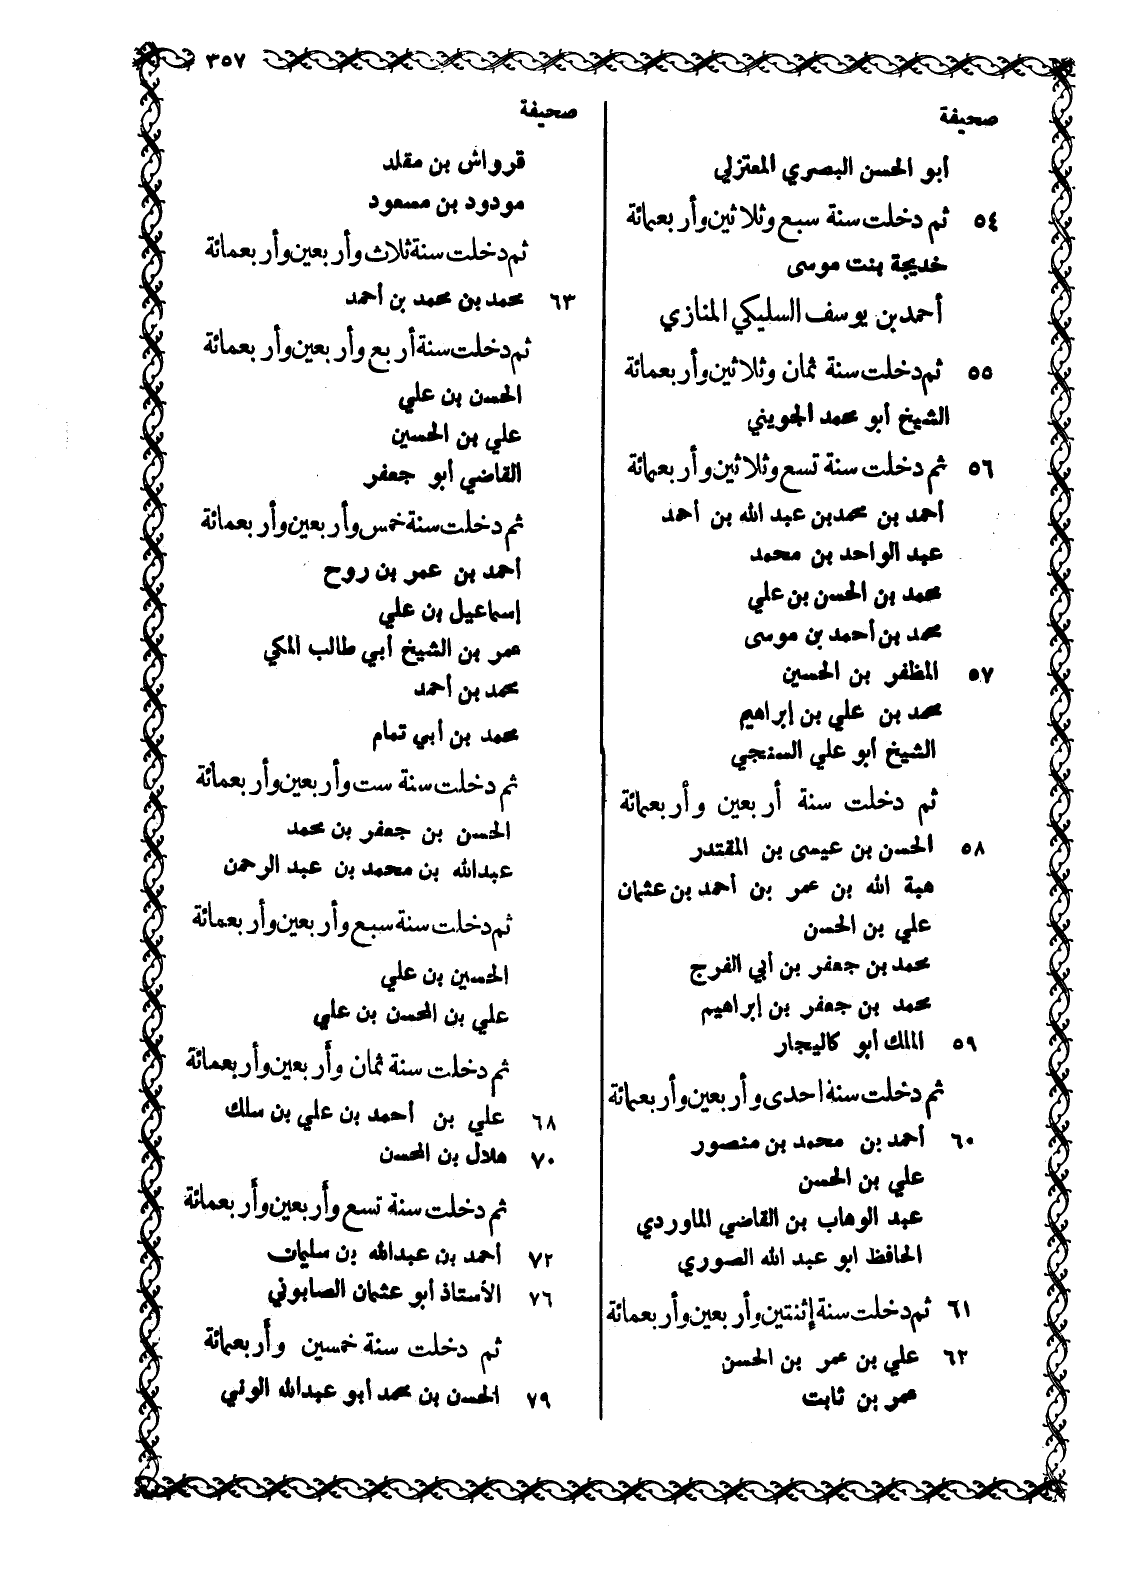 ٣٥٧
صحيفة
أبو الحسن البصري المعتزلي
٥٤ ثم دخلت سنة سبع وثلاثين وأربعمائة
خديجة بنت موسى
أحمد بن يوسف السليكي المنازي
٥٥ ثم دخلت سنة ثمان وثلاثين وأربعمائة
الشيخ أبو محمد الجويني
٥٦ ثم دخلت سنة تسع وثلاثين وأربعمائة
أحمد بن محمد بن عبد الله بن أحمد
عبد الواحد بن محمد
محمد بن الحسن بن علي
محمد بن أحمد بن موسى
٥٧ المظفر بن الحسين
محمد بن علي بن إبراهيم
الشيخ أبو علي السنجي
ثم دخلت سنة أربعين وأربعمائة
٥٨ الحسن بن عيسى بن المقتدر
هبة الله بن عمر بن أحمد بن عثمان
علي بن الحسن
محمد بن جعفر بن أبي الفرج
محمد بن جعفر بن إبراهيم
٥٩ الملك أبو كاليجار
ثم دخلت سنة احدى وأربعين وأربعمائة
٦٠ أحمد بن محمد بن منصور
علي بن الحسن
عبد الوهاب بن القاضي الماوردي
الحافظ ابو عبد الله الصوري
٦١ ثم دخلت سنة إثنتين وأربعين وأربعمائة
٦٢ علي بن عمر بن الحسن
عمر بن ثابت
صحيفة
قرواش بن مقلد
مودود بن مسعود
ثم دخلت سنة ثلاث وأربعين وأربعمائة
٦٣ محمد بن محمد بن أحمد
ثم دخلت سنة أربع وأربعين وأربعمائة
الحسن بن علي
علي بن الحسين
القاضي أبو جعفر
ثم دخلت سنة خمس وأربعين وأربعمائة
أحمد بن عمر بن روح
إسماعيل بن علي
عمر بن الشيخ أبي طالب المكي
محمد بن أحمد
محمد بن أبي تمام
ثم دخلت سنة ست وأربعين وأربعمائة
الحسن بن جعفر بن محمد
عبدالله بن محمد بن عبد الرحمن
ثم دخلت سنة سبع وأربعين وأربعمائة
الحسين بن علي
علي بن المحسن بن علي
ثم دخلت سنة ثمان وأربعين وأربعمائة
٦٨ علي بن أحمد بن علي بن سلك
٧٠ هلال بن المحسن
ثم دخلت سنة تسع وأربعين وأربعمائة
٧٢ أحمد بن عبدالله بن سليمان
٧٦ الأستاذ أبو عثمان الصابوني
ثم دخلت سنة خمسين وأربعمائة
٧٩ الحسن بن محمد أبو عبدالله الوني